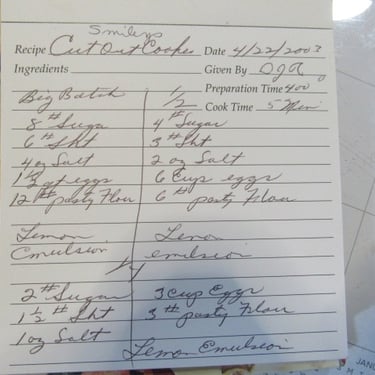 Smileys
Recipe Cut Out Cookies Date 4/22/2003
Ingredients Given By
Preparation Time 400
Cook Time 5 Min
Big Batch 1/2
8 # Sugar 4 # Sugar
6 # Sht 3 # Sht
4 oz Salt 2 oz Salt
1 1/2 qt eggs 6 Cup eggs
12 # pasty Flour 6 # pasty Flour
Lemon Lemon
Emulsion emulsion
1/4
2 # Sugar 3 Cup Eggs
1 1/2 # Sht 3 # pasty Flour
1 oz Salt
Lemon Emulsion
JAN
S M